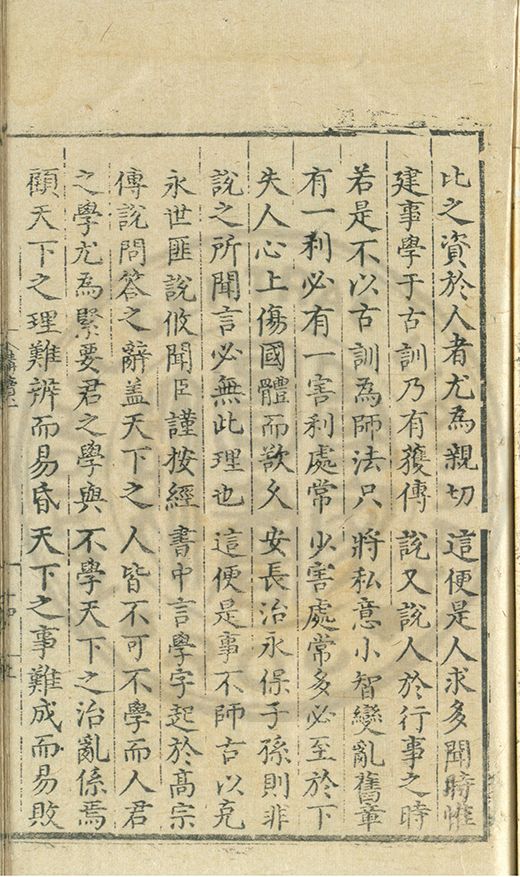 比之資於人者尤為親切這便是人求多聞時惟
建事學于古訓乃有獲傳說又說人於行事之時
若是不以古訓為師法只將私意小智變亂舊章
有一利必有一害利處常少害處常多必至於下
失人心上傷國體而欲久安長治永保子孫則非
說之所聞言必無此理也這便是事不師古以克
永世匪說攸聞臣謹按經書中言學字起於高宗
傅說問答之辭盖天下之人皆不可不學而人君
之學尤為緊要君之學與不學天下之治亂係焉
顧天下之理難辨而易昏天下之事難成而易敗